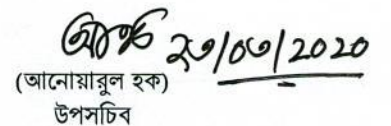 ২৩/০৩/2020
(আনোয়ারুল হক)
উপসচিব